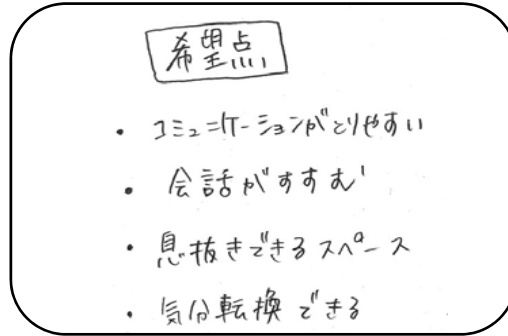 希望点
・コミュニケーションがとりやすい
・会話がすすむ
・息抜きできるスペース
・気分転換できる